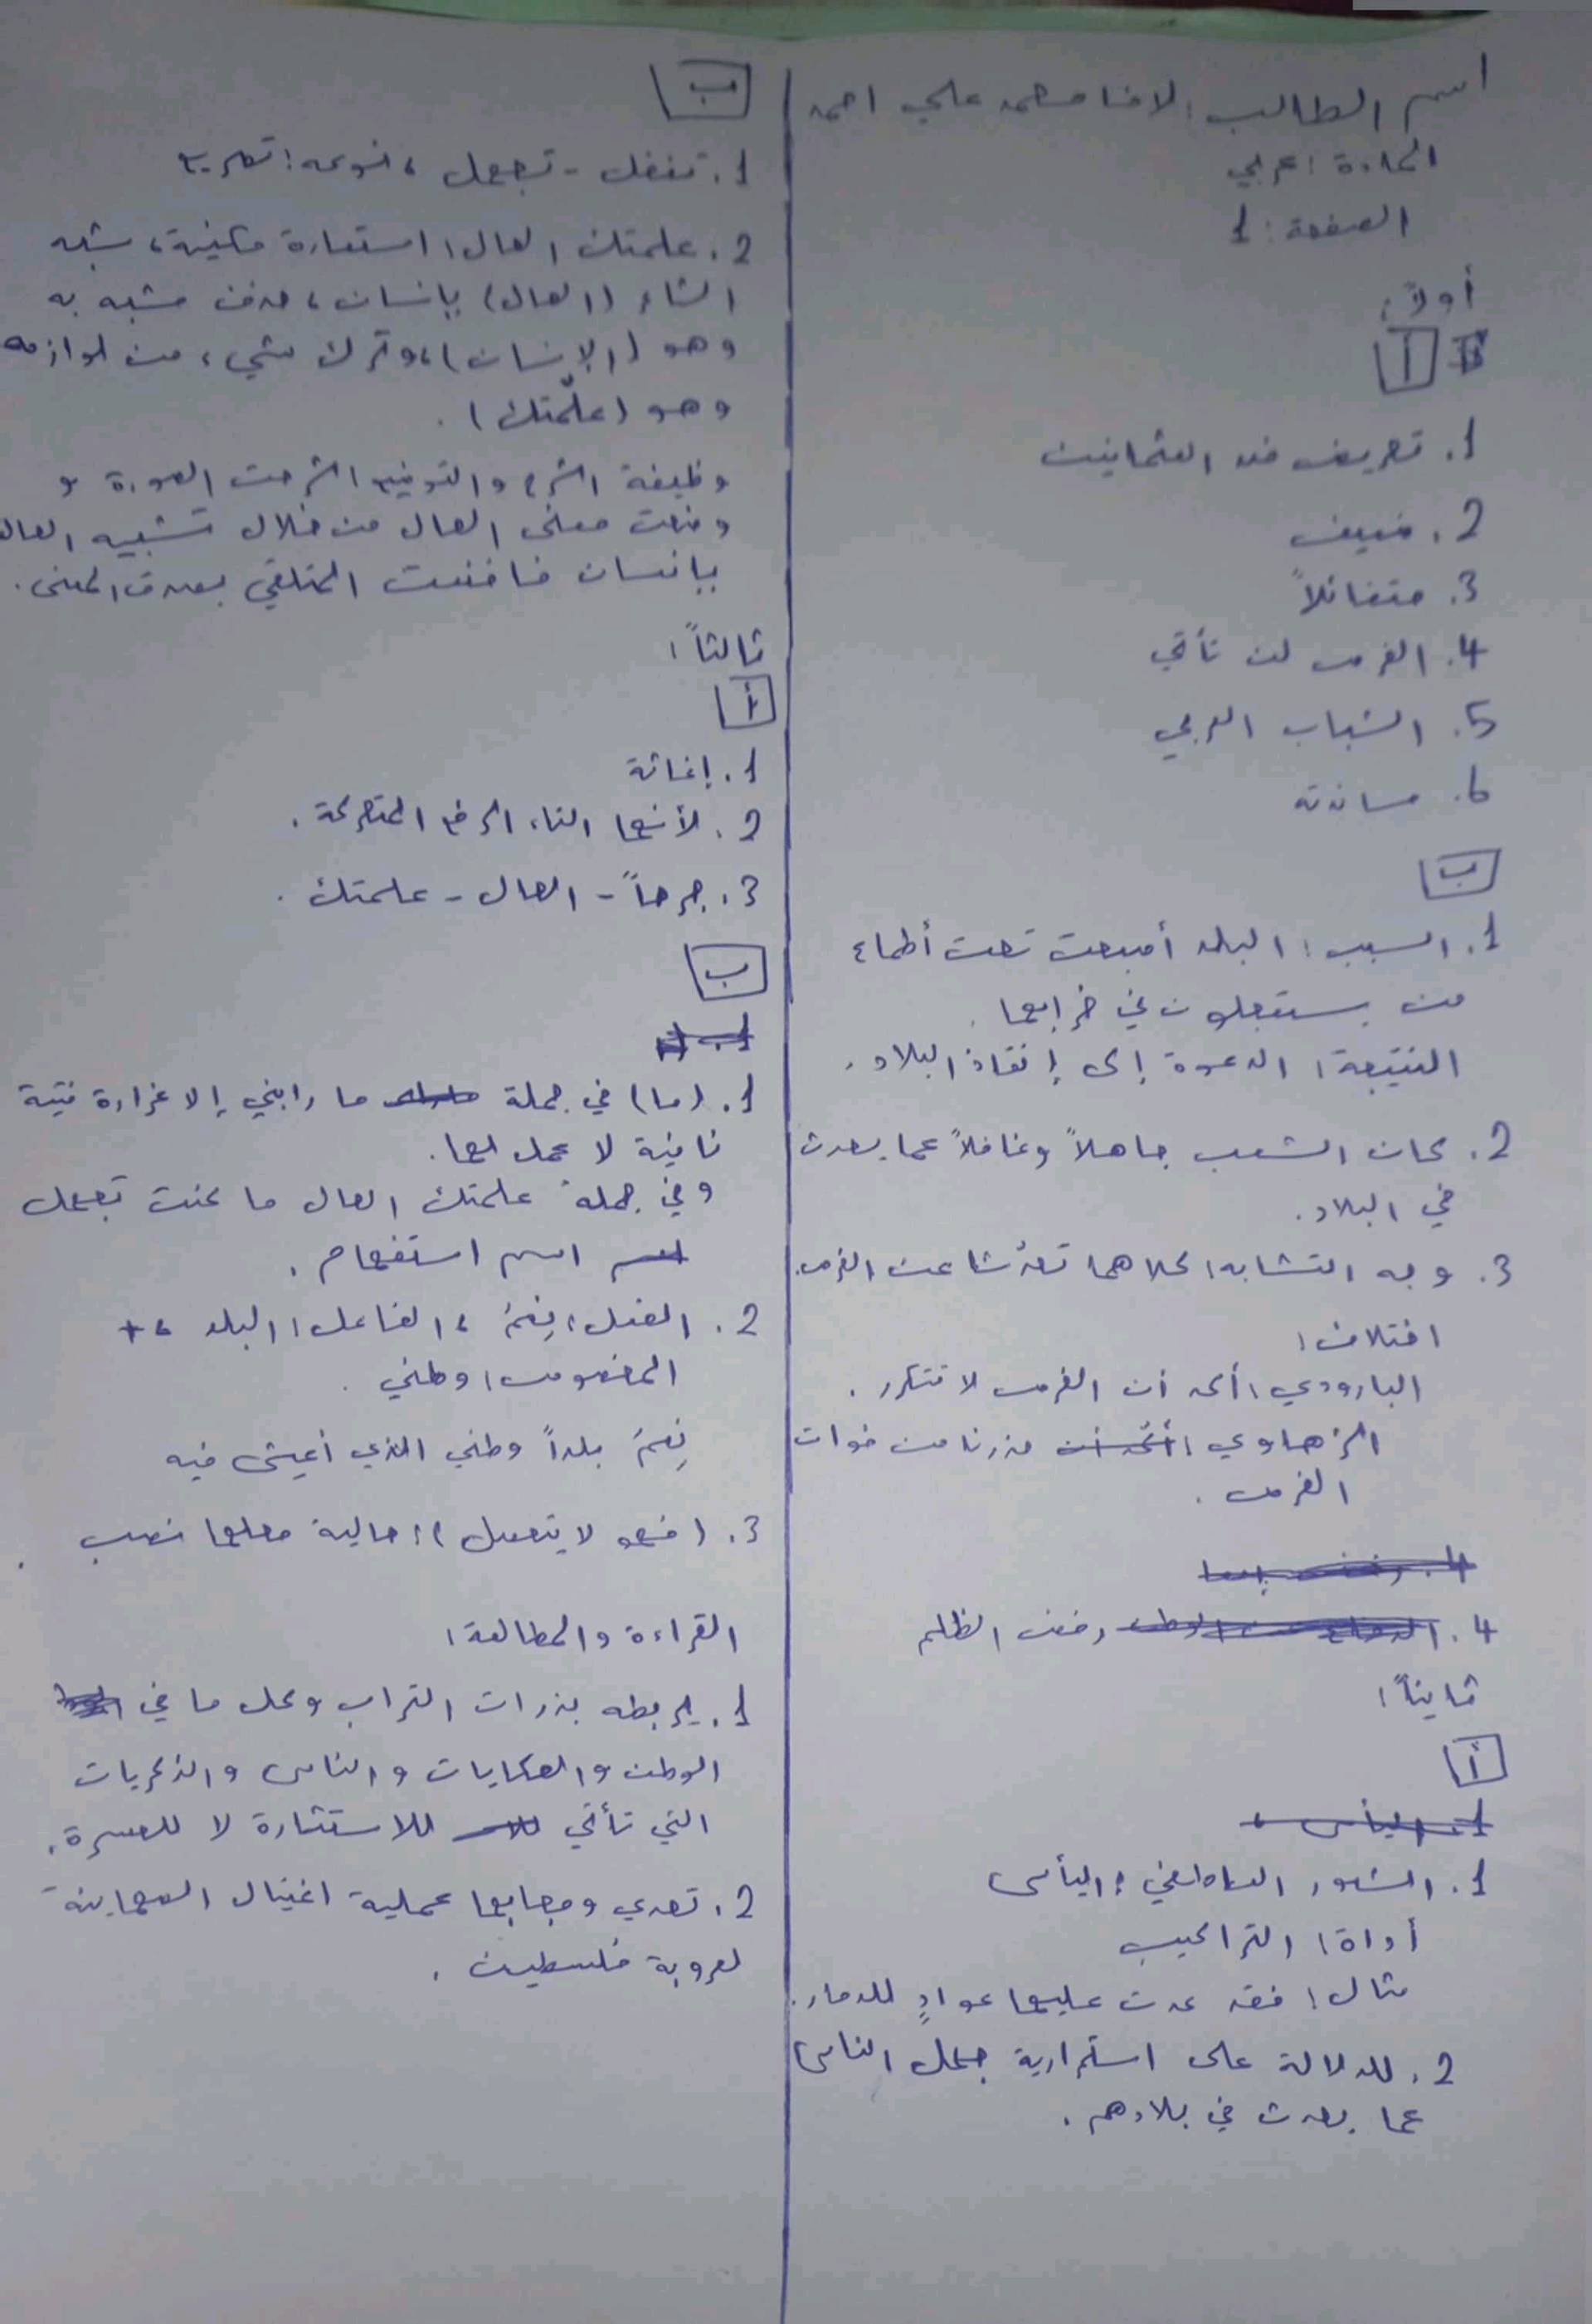 اسم الطالب: لانا محمد علي احمد
المادة: عربي
الصفحة: 1
أولاً:
أ
1. تحريض ضد العثمانيين
2. ضعيف
3. متفائلاً
4. الفرص لن تأتي
5. الشباب العربي
6. مساندته
ب
1. السبب: البلاد أصبحت تحت أطماع
من يستعجلون في خرابها.
النتيجة: الدعوة إلى إنقاذ البلاد.
2. كان الشعب جاهلاً وغافلاً عما يحدث
في البلاد.
3. وجه التشابه: كلاهما تحدثا عن الفرص.
اختلاف:
البارودي: أكد أن الفرص لا تتكرر.
الزهاوي: حذرنا من فوات
الفرص.
4. رفض الظلم
ثانياً:
أ
1. الشعور العاطفي: اليأس
أداة: التراكيب
مثال: فقد عدت عليها عوادٍ للدمار.
2. للدلالة على استمرارية جهل الناس
عما يحدث في بلادهم.
ب
1. تغفل - تجهل، نوعه: تصريع
2. علمتك الحال: استعارة مكنية، شبه
الشاعر (الحال) بإنسان، حذف مشبه به
وهو (الإنسان)، وترك شيء من لوازمه
وهو (علّمتك).
وظيفة الشرح والتوضيح: شرحت الصورة و
وضحت معنى الحال من خلال تشبيه الحال
بإنسان فاقنعت المتلقي بصدق المعنى.
ثالثاً:
أ
1. إغاثة
2. لأنها التاء الرفع المتحركة.
3. جرحاً - الحال - علمتك.
ب
1. (ما) في جملة ما رابني إلا غرارة فتية
نافية لا عمل لها.
وفي جملة علمتك الحال ما كنت تجهل
اسم استفهام.
2. الفعل: نِعْمَ، الفاعل: البلد، +
المخصوص: وطني.
نِعْمَ بلداً وطني الذي أعيش فيه
3. (فهو لا يتمهل): حالية محلها نصب.
القراءة والمطالعة:
1. يربطه بذرات التراب وكل ما في
الوطن والحكايات والناس والذكريات
التي تأتي للاستثارة لا للحسرة.
2. تحدي ومجابها عملية اغتيال الصهاينة
لعروبة فلسطين.